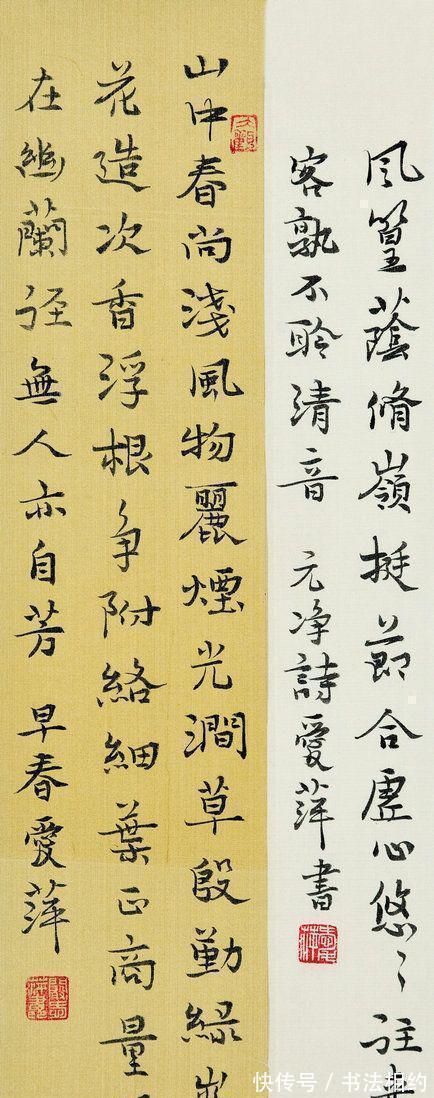 风篁蔭脩嶺挺節含虛心悠〻往
客孰不聆清音 元净詩愛萍書
山中春尚淺風物麗煙光澗草殷勤綠
花造次香浮根争附絡細葉正商量
在幽蘭徑無人亦自芳 早春愛萍
快传号 / 书法相约